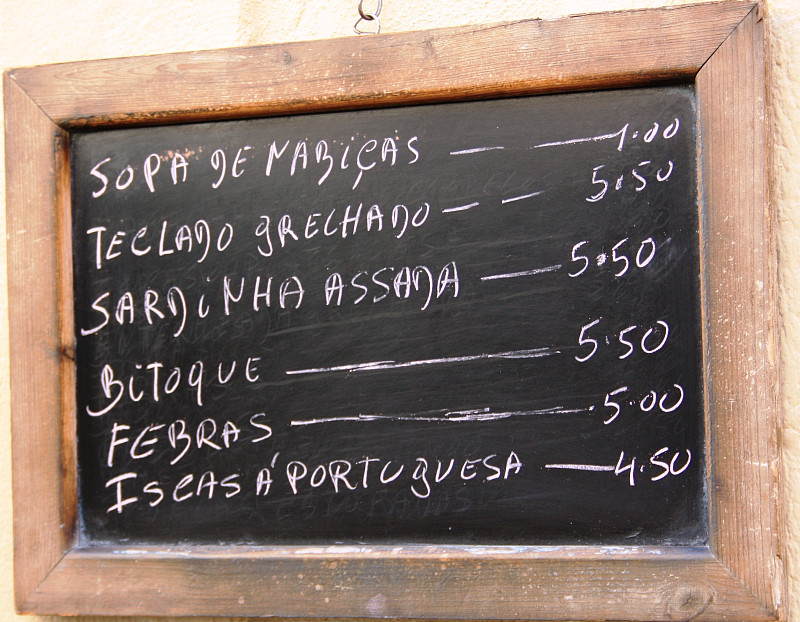 SOPA DE NABIÇAS — — 1.00
TECLADO GRECHADO — — 5.50
SARDINHA ASSADA — 5.50
BITOQUE — 5.50
FEBRAS — 5.00
ISCAS Á PORTUGUESA — 4.50